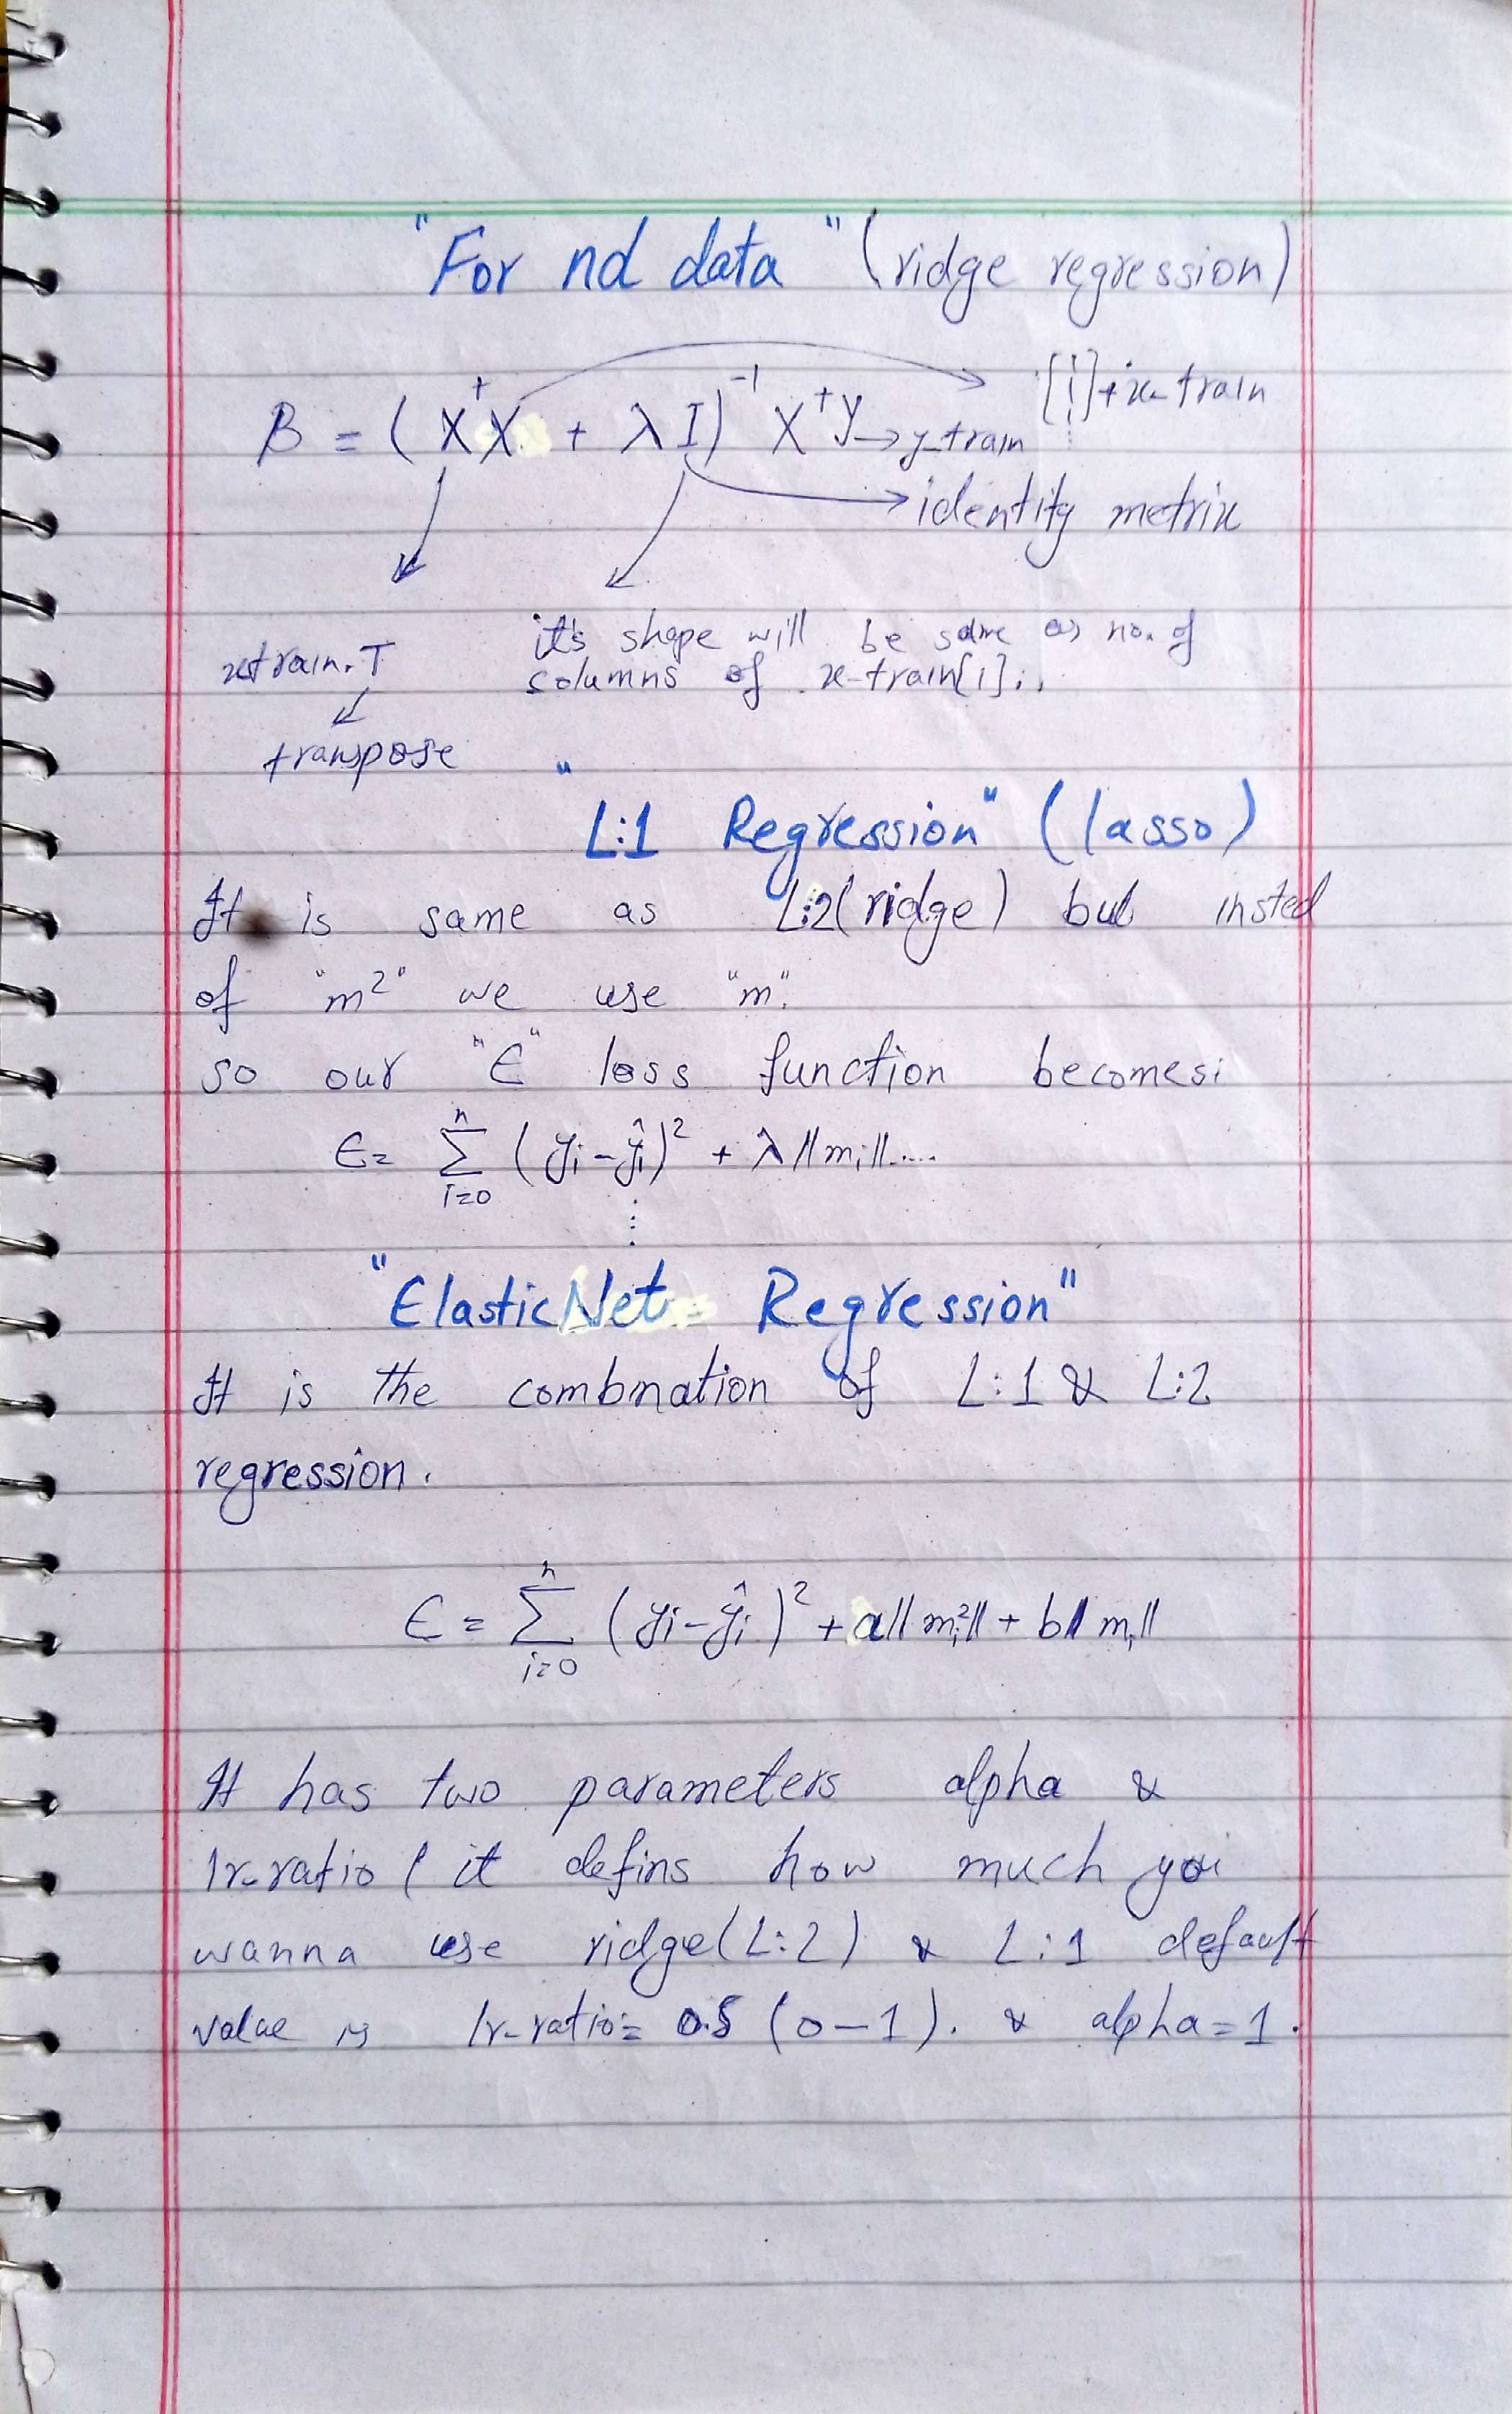 "For nd data" (ridge regression)
[1]+x-train
β = (XᵗX + λI)⁻¹ XᵗY → y-train
identity metrix
it's shape will be same as no. of
xtrain.T
columns of x-train[1]..
transpose
"L:1 Regression" (lasso)
It is same as L:2(ridge) but insted
of "m²" we use "m".
so our "ϵ" loss function becomes:
ϵ= Σⁿᵢ₌₀ (yᵢ-ŷᵢ)² + λ||mᵢ||....
"ElasticNet Regression"
It is the combnation of L:1 & L:2
regression.
ϵ = Σⁿᵢ₌₀ (yᵢ-ŷᵢ)² + a||mᵢ²|| + b||mᵢ||
It has two parameters alpha &
lr-ratio ( it defins how much you
wanna use ridge(L:2) & L:1 default
value is lr-ratio= 0.5 (0-1). & alpha=1.